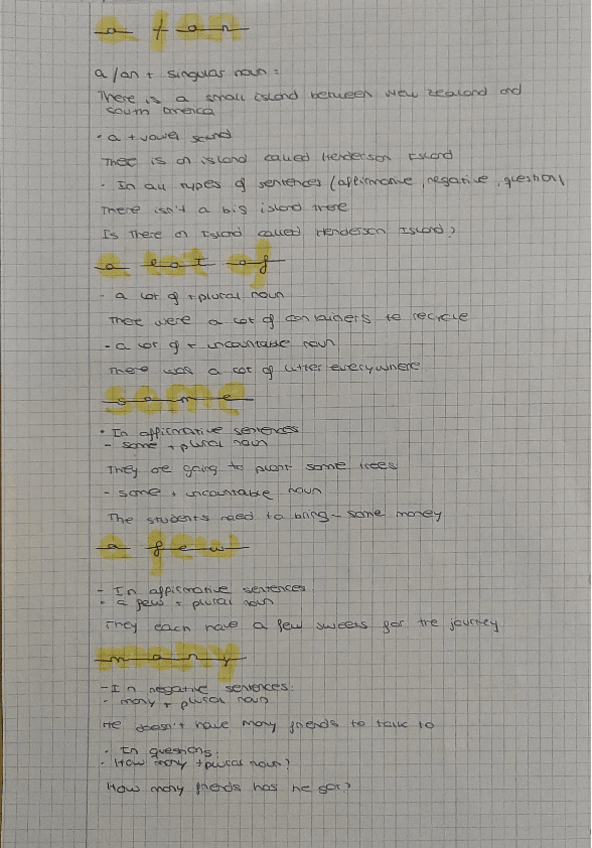 a / an
a/an + singular noun:
There is a small island between New Zealand and
South America
- a + vowel sound
There is an island called Henderson Island
- In all types of sentences (affirmative, negative, question)
There isn't a big island there
Is there an Island called Henderson Island?
a lot of
- a lot of + plural noun
There were a lot of containers to recycle
- a lot of + uncountable noun
There was a lot of litter everywhere
some
- In affirmative sentences
- some + plural noun
They are going to plant some trees
- some + uncountable noun
The students need to bring - some money
a few
- In affirmative sentences
- a few + plural noun
They each have a few sweets for the journey
many
- In negative sentences:
- many + plural noun
He doesn't have many friends to talk to
- In questions:
- How many + plural noun?
How many friends has he got?